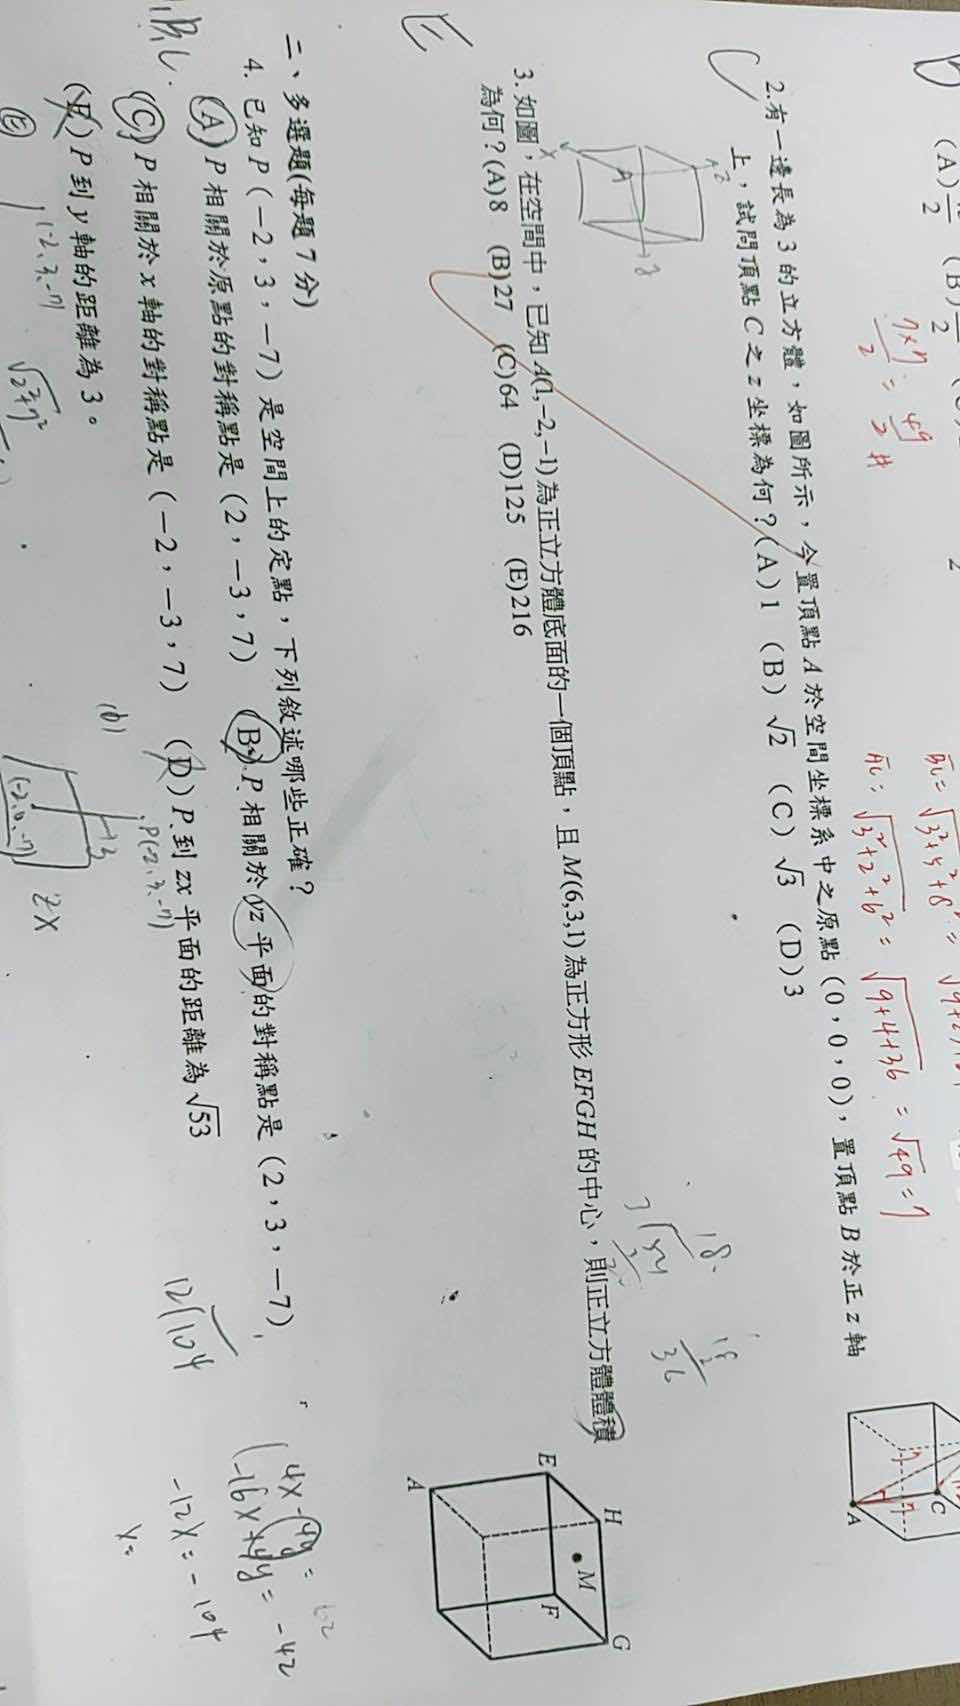 (A) (B)
7×7/2 = 49/2 #
AC = √3²+2²+6² = √9+4+36 = √49 = 7
C
2.有一邊長為3的立方體，如圖所示，今置頂點A於空間坐標系中之原點(0,0,0)，置頂點B於正z軸
上，試問頂點C之z坐標為何？(A)1 (B)√2 (C)√3 (D)3
C
A
E
3.如圖，在空間中，已知A(1,-2,-1)為正立方體底面的一個頂點，且M(6,3,1)為正方形EFGH的中心，則正立方體體積
為何？(A)8 (B)27 (C)64 (D)125 (E)216
H
G
E
F
M
A
18
36
二、多選題(每題7分)
4. 已知P(-2,3,-7)是空間上的定點，下列敘述哪些正確？
(A)P相關於原點的對稱點是(2,-3,7) (B)P相關於yz平面的對稱點是(2,3,-7)
(C)P相關於x軸的對稱點是(-2,-3,7) (D)P到zx平面的距離為√53
(E)P到y軸的距離為3。
12⟌104
-16x+4y=-42
-12x=-104
x=
(D)
P(-2,3,-7)
(-2,0,-7)
ZX
(E)
(-2,3,-7)
√2²+7²